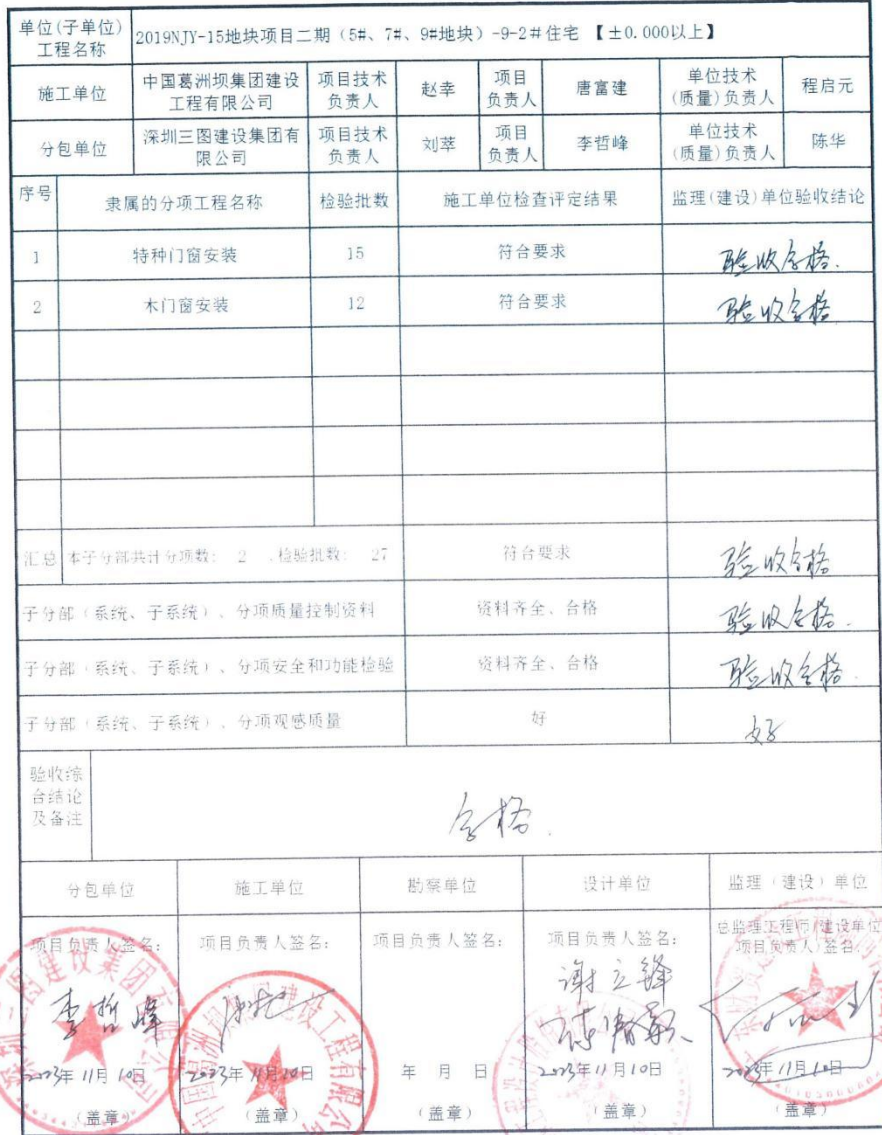 单位(子单位)
工程名称
2019NJY-15地块项目二期（5#、7#、9#地块）-9-2#住宅 【±0.000以上】
施工单位
中国葛洲坝集团建设
工程有限公司
项目技术
负责人
赵幸
项目
负责人
唐富建
单位技术
(质量)负责人
程启元
分包单位
深圳三图建设集团有
限公司
项目技术
负责人
刘莘
项目
负责人
李哲峰
单位技术
(质量)负责人
陈华
序号
隶属的分项工程名称
检验批数
施工单位检查评定结果
监理(建设)单位验收结论
1
特种门窗安装
15
符合要求
验收合格.
2
木门窗安装
12
符合要求
验收合格
汇总
本子分部共计分项数： 2 ,检验批数： 27
符合要求
验收合格
子分部（系统、子系统）、分项质量控制资料
资料齐全、合格
验收合格.
子分部（系统、子系统）、分项安全和功能检验
资料齐全、合格
验收合格.
子分部（系统、子系统）、分项观感质量
好
好
验收综
合结论
及备注
合格.
分包单位
施工单位
勘察单位
设计单位
监理（建设）单位
项目负责人签名:
项目负责人签名:
项目负责人签名:
项目负责人签名:
总监理工程师/建设单位
项目负责人签名:
李哲峰
谢立锋
2023年11月10日
2023年11月10日
年 月 日
2023年11月10日
2023年11月10日
（盖章）
（盖章）
（盖章）
（盖章）
（盖章）